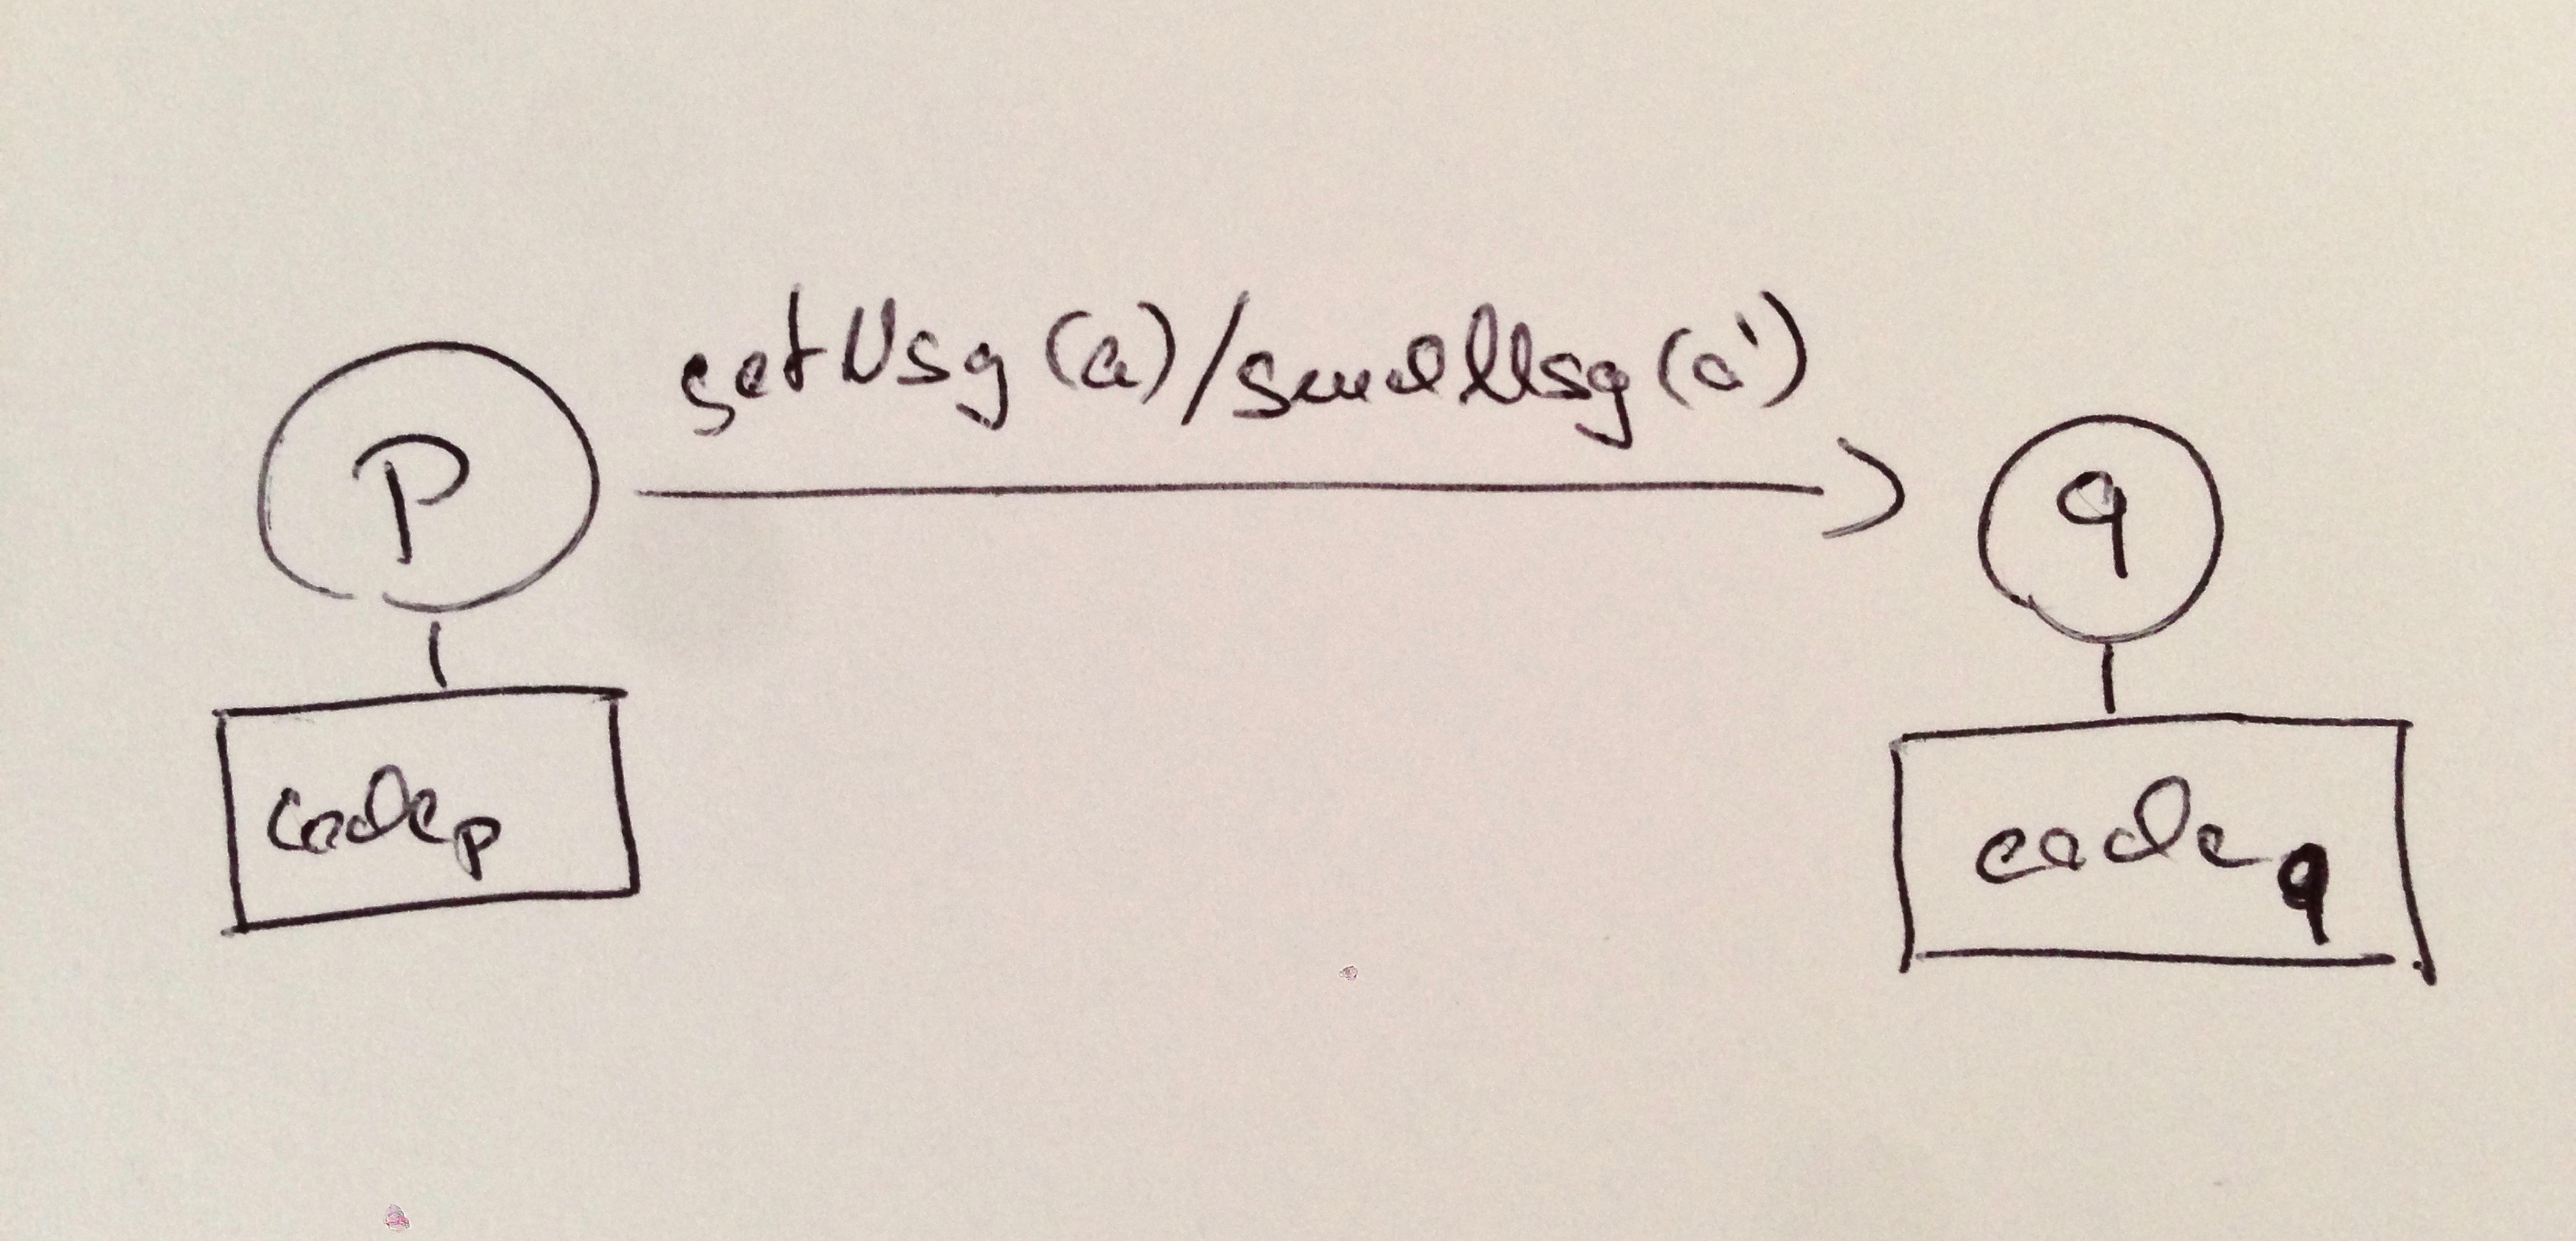 getMsg(a)/sendMsg(a')
P
q
code p
code q